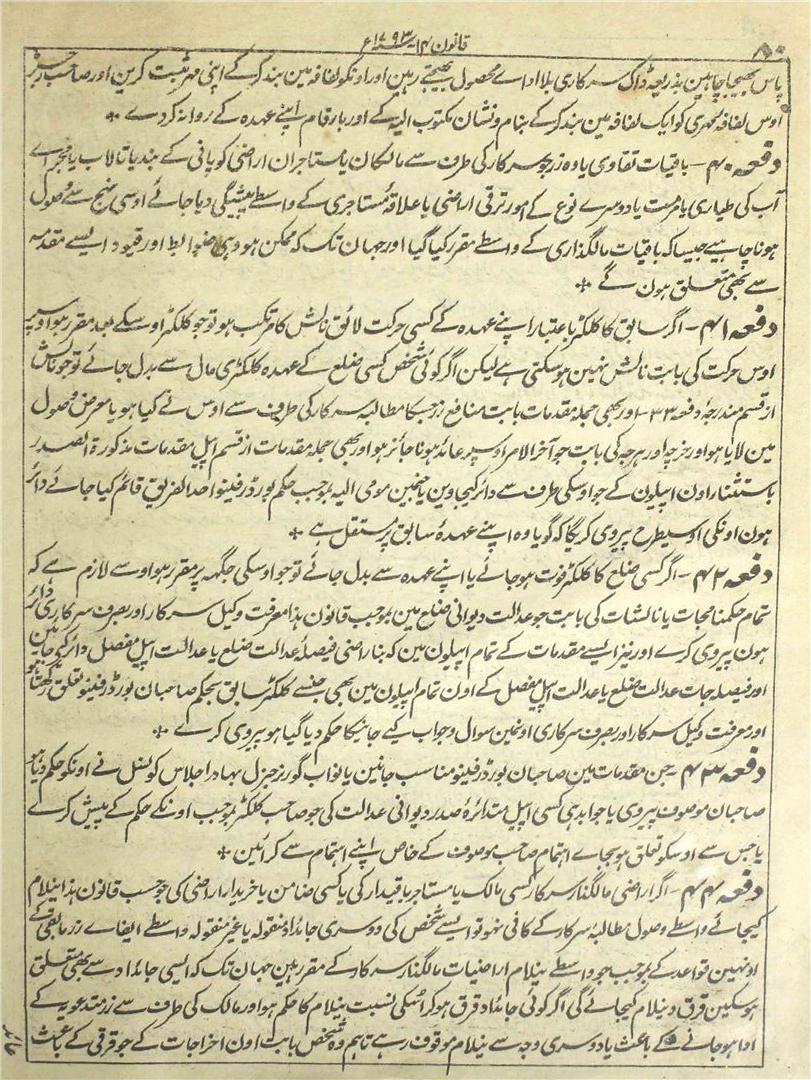 ۸۰ قانون ۱۴ سنہ ۱۷۹۳ع
پاس بھیجا چاہین بذریعہ ڈاک سرکاری بلا اداے محصول بھیجتے رہین اور اونکو لفافہ مین بند کرکے اپنی مہر ثبت کرین اور صاحب رجسٹر
اوس لفافۂ مہری کو ایک لفافہ مین بند کرکے بنام و نشان مکتوب الیہ کے اور بارقام اپنے عہدہ کے روانہ کردے ٭
دفعہ ۴۰ - باقیات تقاوی یا وہ زر جو سرکار کی طرف سے مالکان یا مستاجران اراضی کو پانی کے بند یا تالاب یا مجراے
آب کی طیاری یا مرمت یا دوسرے نوع کے امور ترقی اراضی یا علاقۂ مستاجری کے واسطے پیشگی دیا جائے اوسی نہج سے وصول
ہونا چاہیے جیسا کہ باقیات مالگذاری کے واسطے مقرر کیا گیا اور جہان تک کہ ممکن ہو وہی ضوابط اور قیود ایسے مقدمہ
سے بھی متعلق ہون گے ٭
دفعہ ۴۱ - اگر سابق کا کلکٹر باعتبار اپنے عہدہ کے کسی حرکت لائق نالش کا مرتکب ہو تو جو کلکٹر اوسکے بعد مقرر ہو اوسپر
اوس حرکت کی بابت نالش نہین ہوسکتی ہے لیکن اگر کوئی شخص کسی ضلع کے عہدہ کلکٹری مال سے بدل جائے تو جو نالش
از قسم مندرجۂ دفعہ ۳۳ - اور بھی جملہ مقدمات بابت منافع زر جسکا مطالبہ سرکار کی طرف سے اوس نے کیا ہو یا معرض وصول
مین لایا ہو اور خرچہ اور ہرجہ کی بابت جو آخر الامر اوسپر عائد ہونا جائز ہو اور بھی جملہ مقدمات از قسم اپیل مقدمات مذکورۃ الصدر
باستثناء اون اپیلون کے جو اوسکی طرف سے دائر کیجاوین یا جنمین مومی الیہ بموجب حکم بورڈ رفینیو احد الفریق قائم کیا جائے دائر
ہون اونکی اوسیطرح پیروی کریگا کہ گویا وہ اپنے عہدۂ سابق پر مستقل ہے ٭
دفعہ ۴۲ - اگر کسی ضلع کا کلکٹر فوت ہو جائے یا اپنے عہدہ سے بدل جائے تو جو اوسکی جگہہ پر مقرر ہو اوسے لازم ہے کہ
تمام حکمنامجات یا نالشات کی بابت جو عدالت دیوانی ضلع مین بموجب قانون ہذا معرفت وکیل سرکار اور بصرف سرکاری دائر
ہون پیروی کرے اور نیز ایسے مقدمات کے تمام اپیلون مین کہ بناراضی فیصلۂ عدالت ضلع یا عدالت اپیل مفصل دائر کیجائین
اور فیصلہ جات عدالت ضلع یا عدالت اپیل مفصل کے اون تمام اپیلون مین بھی جنسے کلکٹر سابق بحکم صاحبان بورڈ رفینیو تعلق رکھتا ہو
اور معرفت وکیل سرکار اور بصرف سرکاری اونمین سوال و جواب کیے جانیکا حکم دیا گیا ہو پیروی کرے ٭
دفعہ ۴۳ - جن مقدمات مین صاحبان بورڈ رفینیو مناسب جانین یا نواب گورنر جنرل بہادر اجلاس کونسل نے اونکو حکم دیا ہو
صاحبان موصوف پیروی یا جوابدہی کسی اپیل متدائرۂ صدر دیوانی عدالت کی جو صاحب کلکٹر بموجب اونکے حکم کے پیش کرے
یا جس سے اوسکو تعلق ہو بجاے اہتمام صاحب موصوف کے خاص اپنے اہتمام سے کرائین ٭
دفعہ ۴۴ - اگر اراضی مالگذار سرکار کسی مالک یا مستاجر باقیدار کی یا کسی ضامن یا خریدار اراضی کی جو حسب قانون ہذا نیلام
کیجائے واسطے وصول مطالبۂ سرکار کے کافی نہو تو ایسے شخص کی دوسری جائداد منقولہ یا غیر منقولہ واسطے ایفاے زر مابقی کے
اونہین قواعد کے بموجب جو واسطے نیلام اراضیات مالگذار سرکار کے مقرر ہین جہان تک کہ ایسی جائداد سے بھی متعلق
ہوسکین قرق و نیلام کیجائے گی اگر کوئی جائداد قرق ہو کر اسکی نسبت نیلام کا حکم ہو اور مالک کی طرف سے زر متدعویہ کے
ادا ہو جانے کے باعث یا دوسری وجہ سے نیلام موقوف رہے تاہم وہ شخص بابت اون اخراجات کے جو قرقی کے باعث
عائد